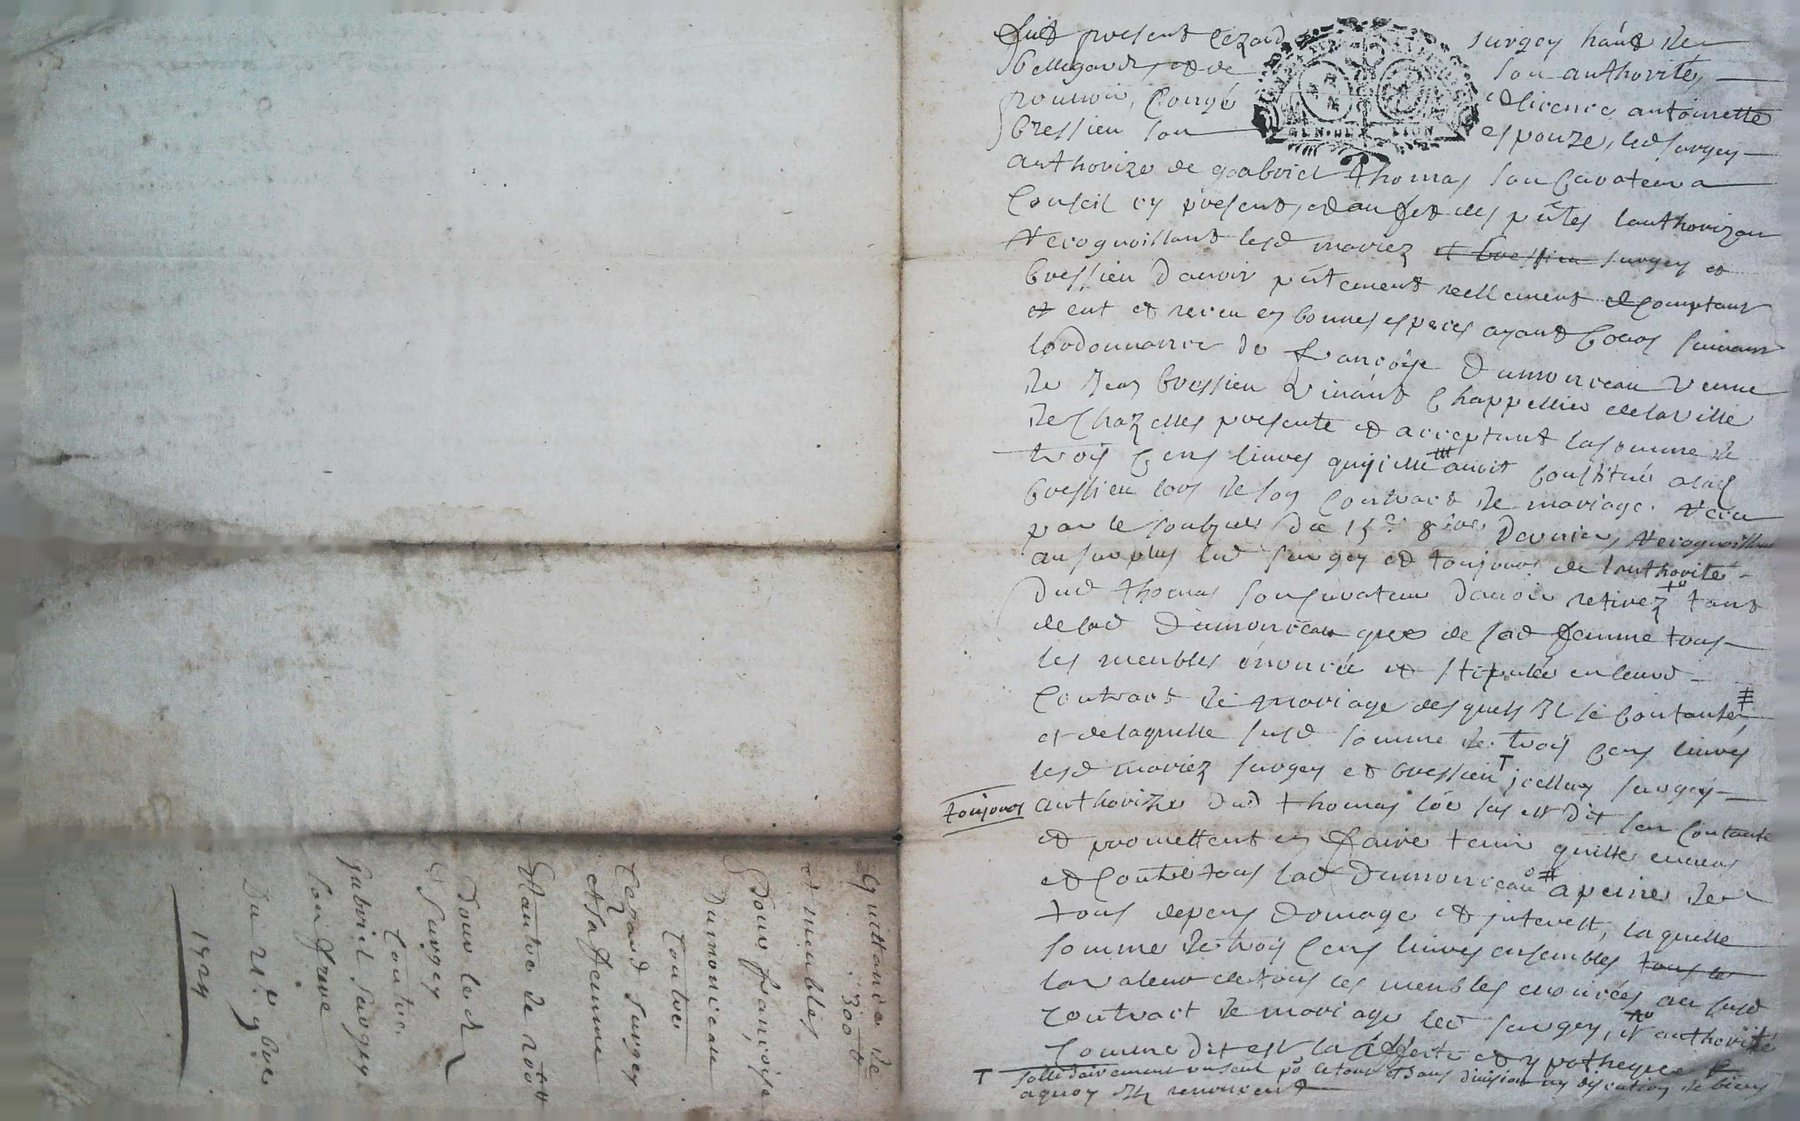 fut present Cezard surgey habt de
Bellegarde, et de son authorité,
pouvoir, Congé et licence antoinette
Bressieu son espouze, led surgey
authorizé de gabriel thomas son Curateur a
Conseil cy present, et au fet des pntes lauthorizan
recognoissant lesd mariez et Bressieu surgey et
Bressieu davoir pntement reellement et comptant
et eut et receu en bonnes especes ayant Cours suivant
lordonnance de françoise Dumonceau veuve
de Jean Bressieu vivant Chappellier de la ville
de Chazelles presente et acceptant la somme de
trois Cens livres quicelle avoit Constitué a lad
Bressieu lors de son Contract de mariage receu
par le soubzné du 15e 8bre dernier, recognoissan
au surplus led surgey et toujours de lauthorité
dud thomas son Curateur davoir retirez tant
de lad Dumonceau que de sad femme tous
les meubles énoncée et stipulée en leurd
Contract de mariage desquels Il se Contante,
et de laquelle susd somme de trois Cens livres
lesd mariez surgey et Bressieu icelluy surgey
toujours
authorizé dud thomas Come est dit son Contante
et promettent en faire tenir quitte envers
et Contre tous lad Dumonceau a peine de
tous depens Domage et interest, laquelle
somme de trois Cens livres ensembles tous le
la valeur de tous les meubles enoncées au susd
Contract de mariage led surgey, authorité
Comme dit est la et ypotheque
solidairement un seul po le tout et sans division ny discution de biens
a quoy Ils renoncent
GEN. DE LION
Quittance de
300 tt
et meubles
Pour françoise
Dumonceau
Contre
Cezard surgey
et sa femme
et autre de 200 tt
Pour led
Surgey
Contre
gabriel surgey
son frere
Du 21e 9bre
1724